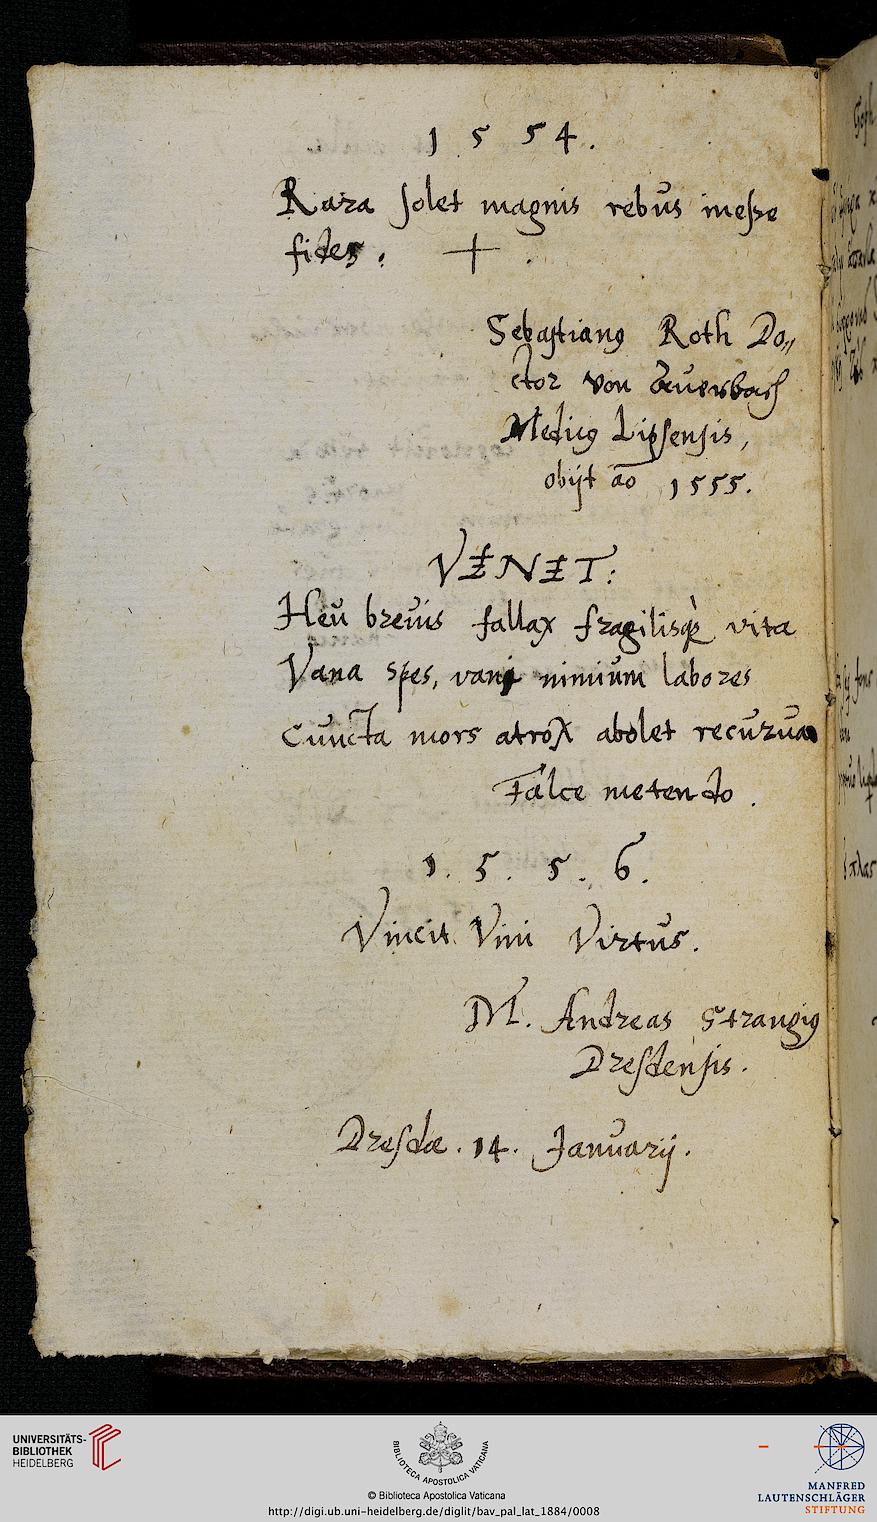 1 5 5 4.
Rara solet magnis rebus inesse
fides. +.
Sebastianus Roth Do„
ctor von Auerbach
Medicus Lipsensis,
obijt ao 1555.
VENET:
Heu brevis fallax fragilisque vita
Vana spes, vani nimium labores
Cuncta mors atrox abolet recurva
Falce metendo.
1. 5. 5. 6.
Vincit Vim Virtus.
M. Andreas Strangius
Dresdensis.
Dresdæ. 14. Januarij.
UNIVERSITÄTS-
BIBLIOTHEK
HEIDELBERG
BIBLIOTECA APOSTOLICA VATICANA
© Biblioteca Apostolica Vaticana
http://digi.ub.uni-heidelberg.de/diglit/bav_pal_lat_1884/0008
MANFRED
LAUTENSCHLÄGER
STIFTUNG